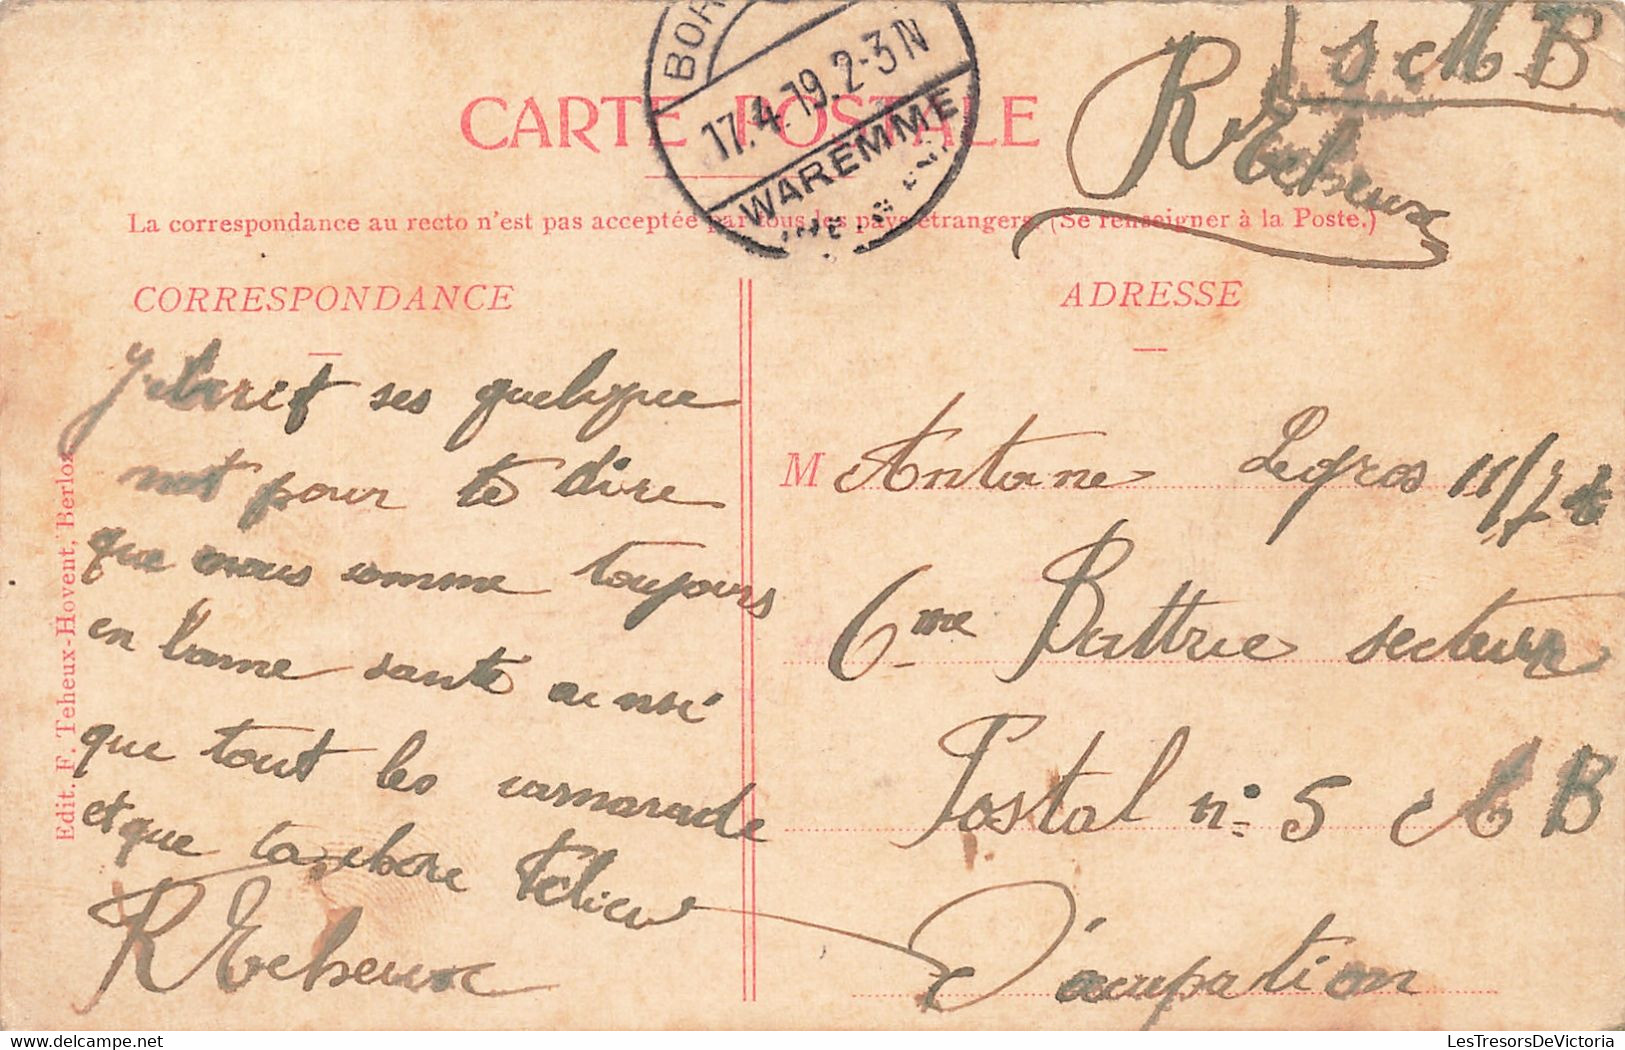 S M B
R Teheux
BOR
17.4.19.2-3 N
WAREMME
CARTE POSTALE
La correspondance au recto n'est pas acceptée par tous les pays étrangers. (Se renseigner à la Poste.)
CORRESPONDANCE
J'écrit ses quelque
mot pour te dire
que nous somme toujours
en bonne santé ainsi
que tout les camarade
et que
R Teheux
Edit. F. Teheux-Hovent, Berloz
ADRESSE
M Antoine Legros
6me Battrie secteur
Postal n° 5 A B
D'ocupation
LesTresorsDeVictoria